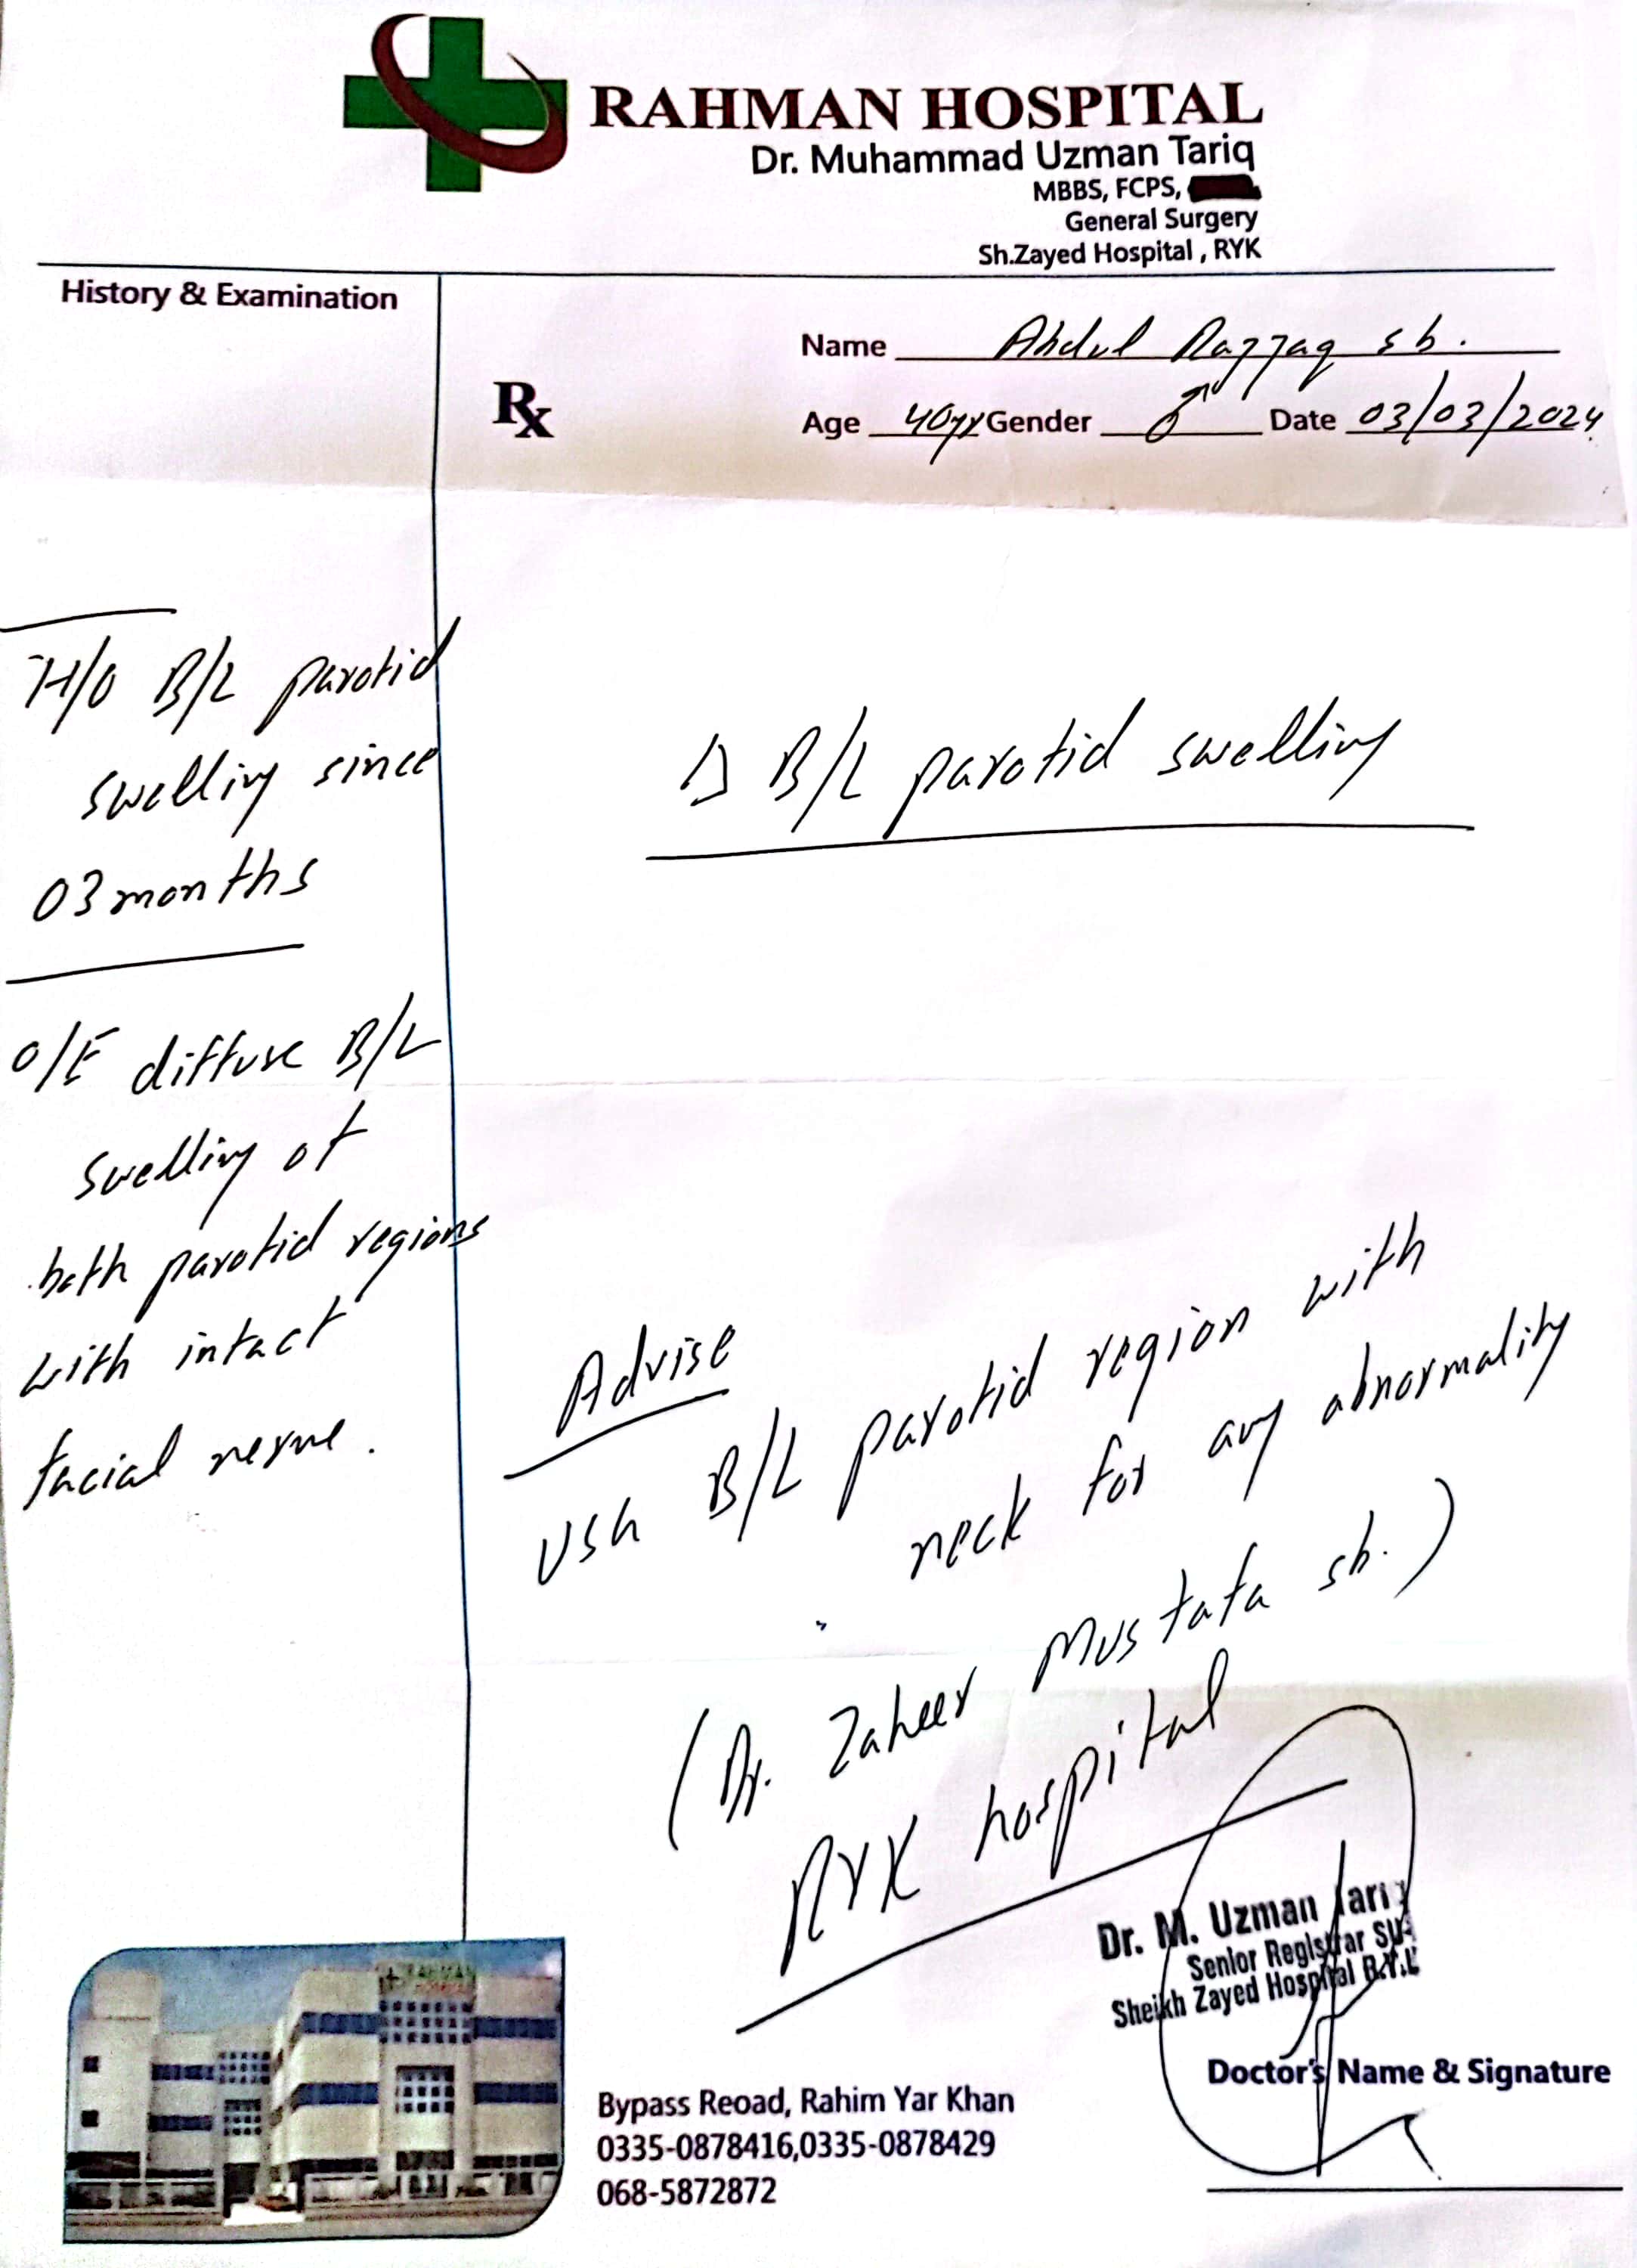 RAHMAN HOSPITAL
Dr. Muhammad Uzman Tariq
MBBS, FCPS,
General Surgery
Sh.Zayed Hospital , RYK
History & Examination
Name Abdul Razzaq sb.
Rx
Age 40yr Gender ♂ Date 03/03/2024
H/O B/L parotid
swelling since
03 months
O/E diffuse B/L
swelling of
both parotid regions
with intact
facial nerve.
Δ B/L parotid swelling
Advise
USG B/L parotid region with
neck for any abnormality
(Dr. Zaheer Mustafa sb.)
RYK hospital
Dr. M. Uzman Tariq
Senior Registrar
Sheikh Zayed Hospital
Doctor's Name & Signature
Bypass Reoad, Rahim Yar Khan
0335-0878416,0335-0878429
068-5872872